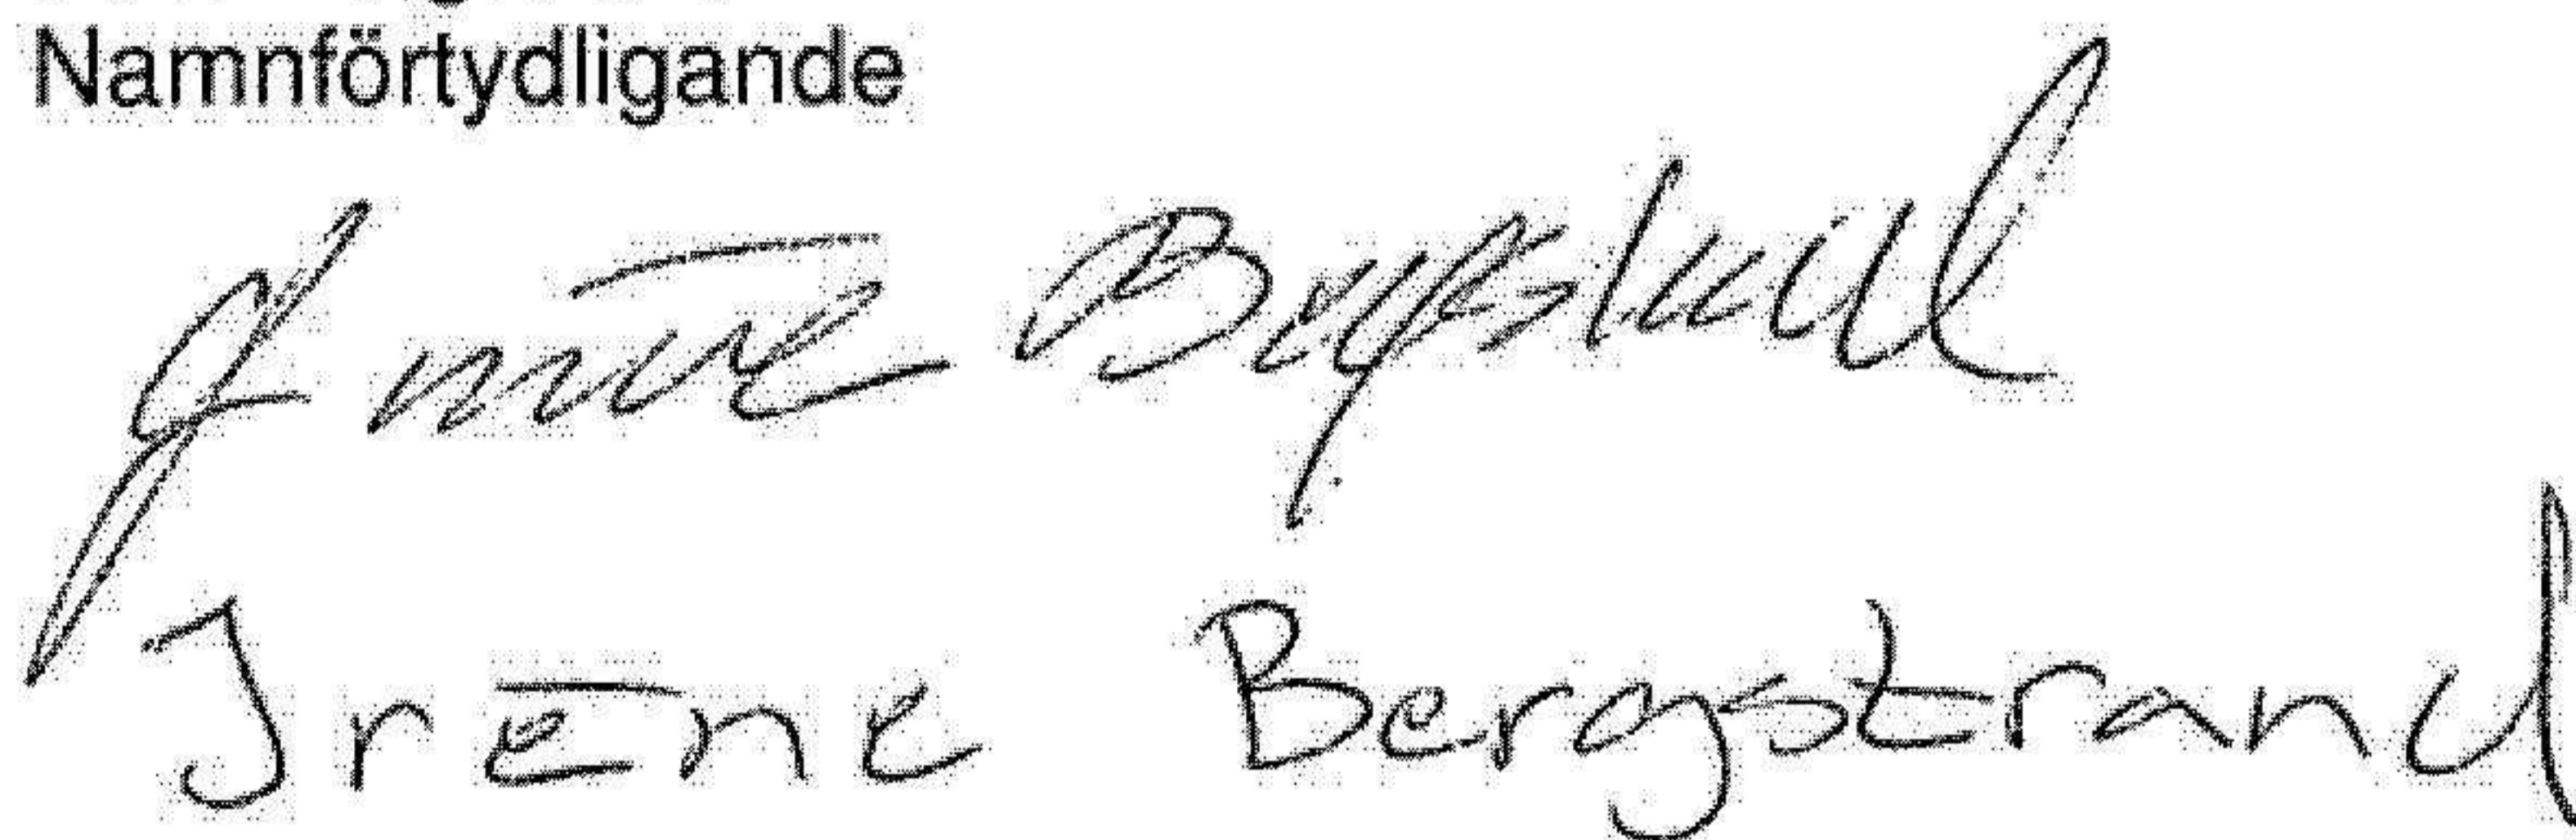 Namnförtydligande
Irēne Bergstrand
Irēne Bergstrand